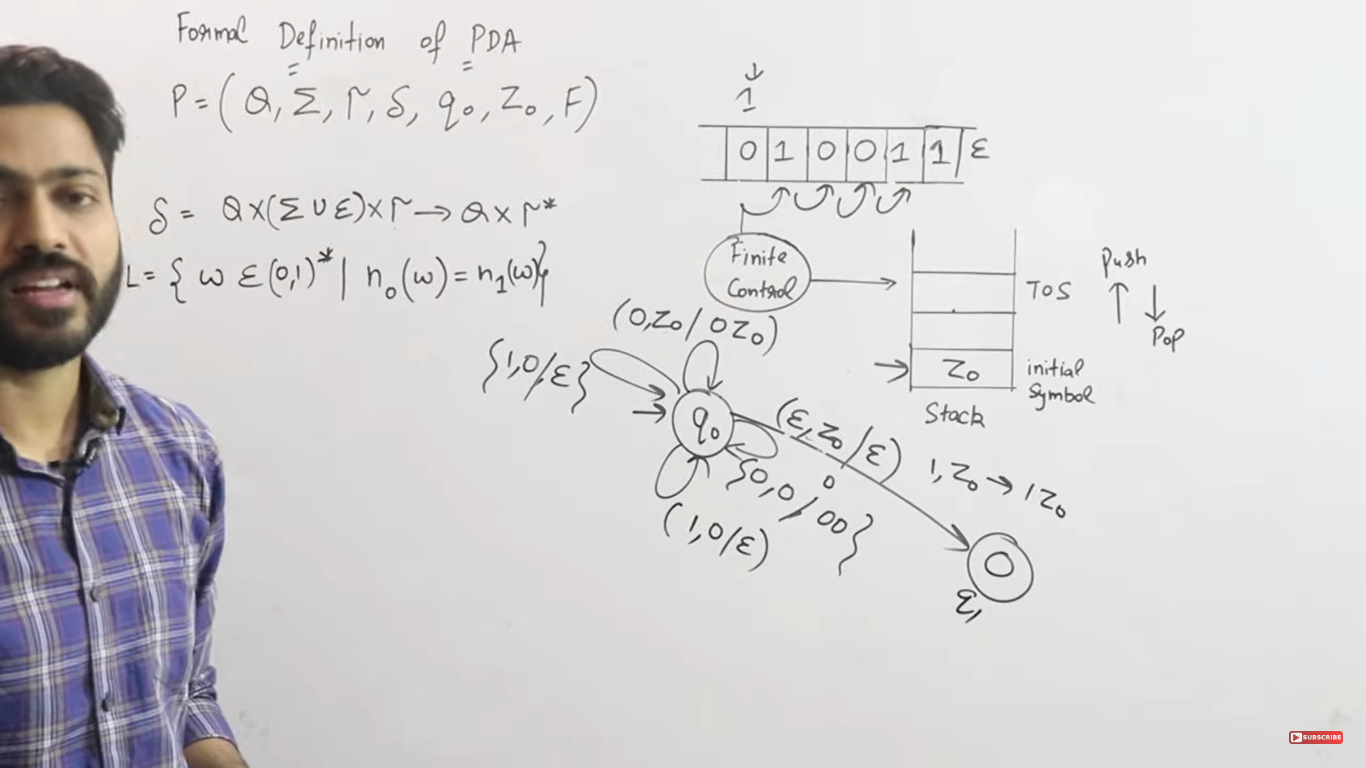 Formal Definition of PDA
P = (Q, Σ, Γ, δ, q₀, Z₀, F)
δ = Q×(Σ∪ε)×Γ→Q×Γ*
L = { w ε (0,1)* | n₀(w) = n₁(w)}
1
0 1 0 0 1 1 ε
Finite
Control
TOS
Push
Pop
Z₀
initial
Symbol
Stack
(0,Z₀/0Z₀)
{1,0/ε}
q₀
(ε,Z₀/ε)
{0,0/00}
(1,0/ε)
1,Z₀→1Z₀
q₁
SUBSCRIBE